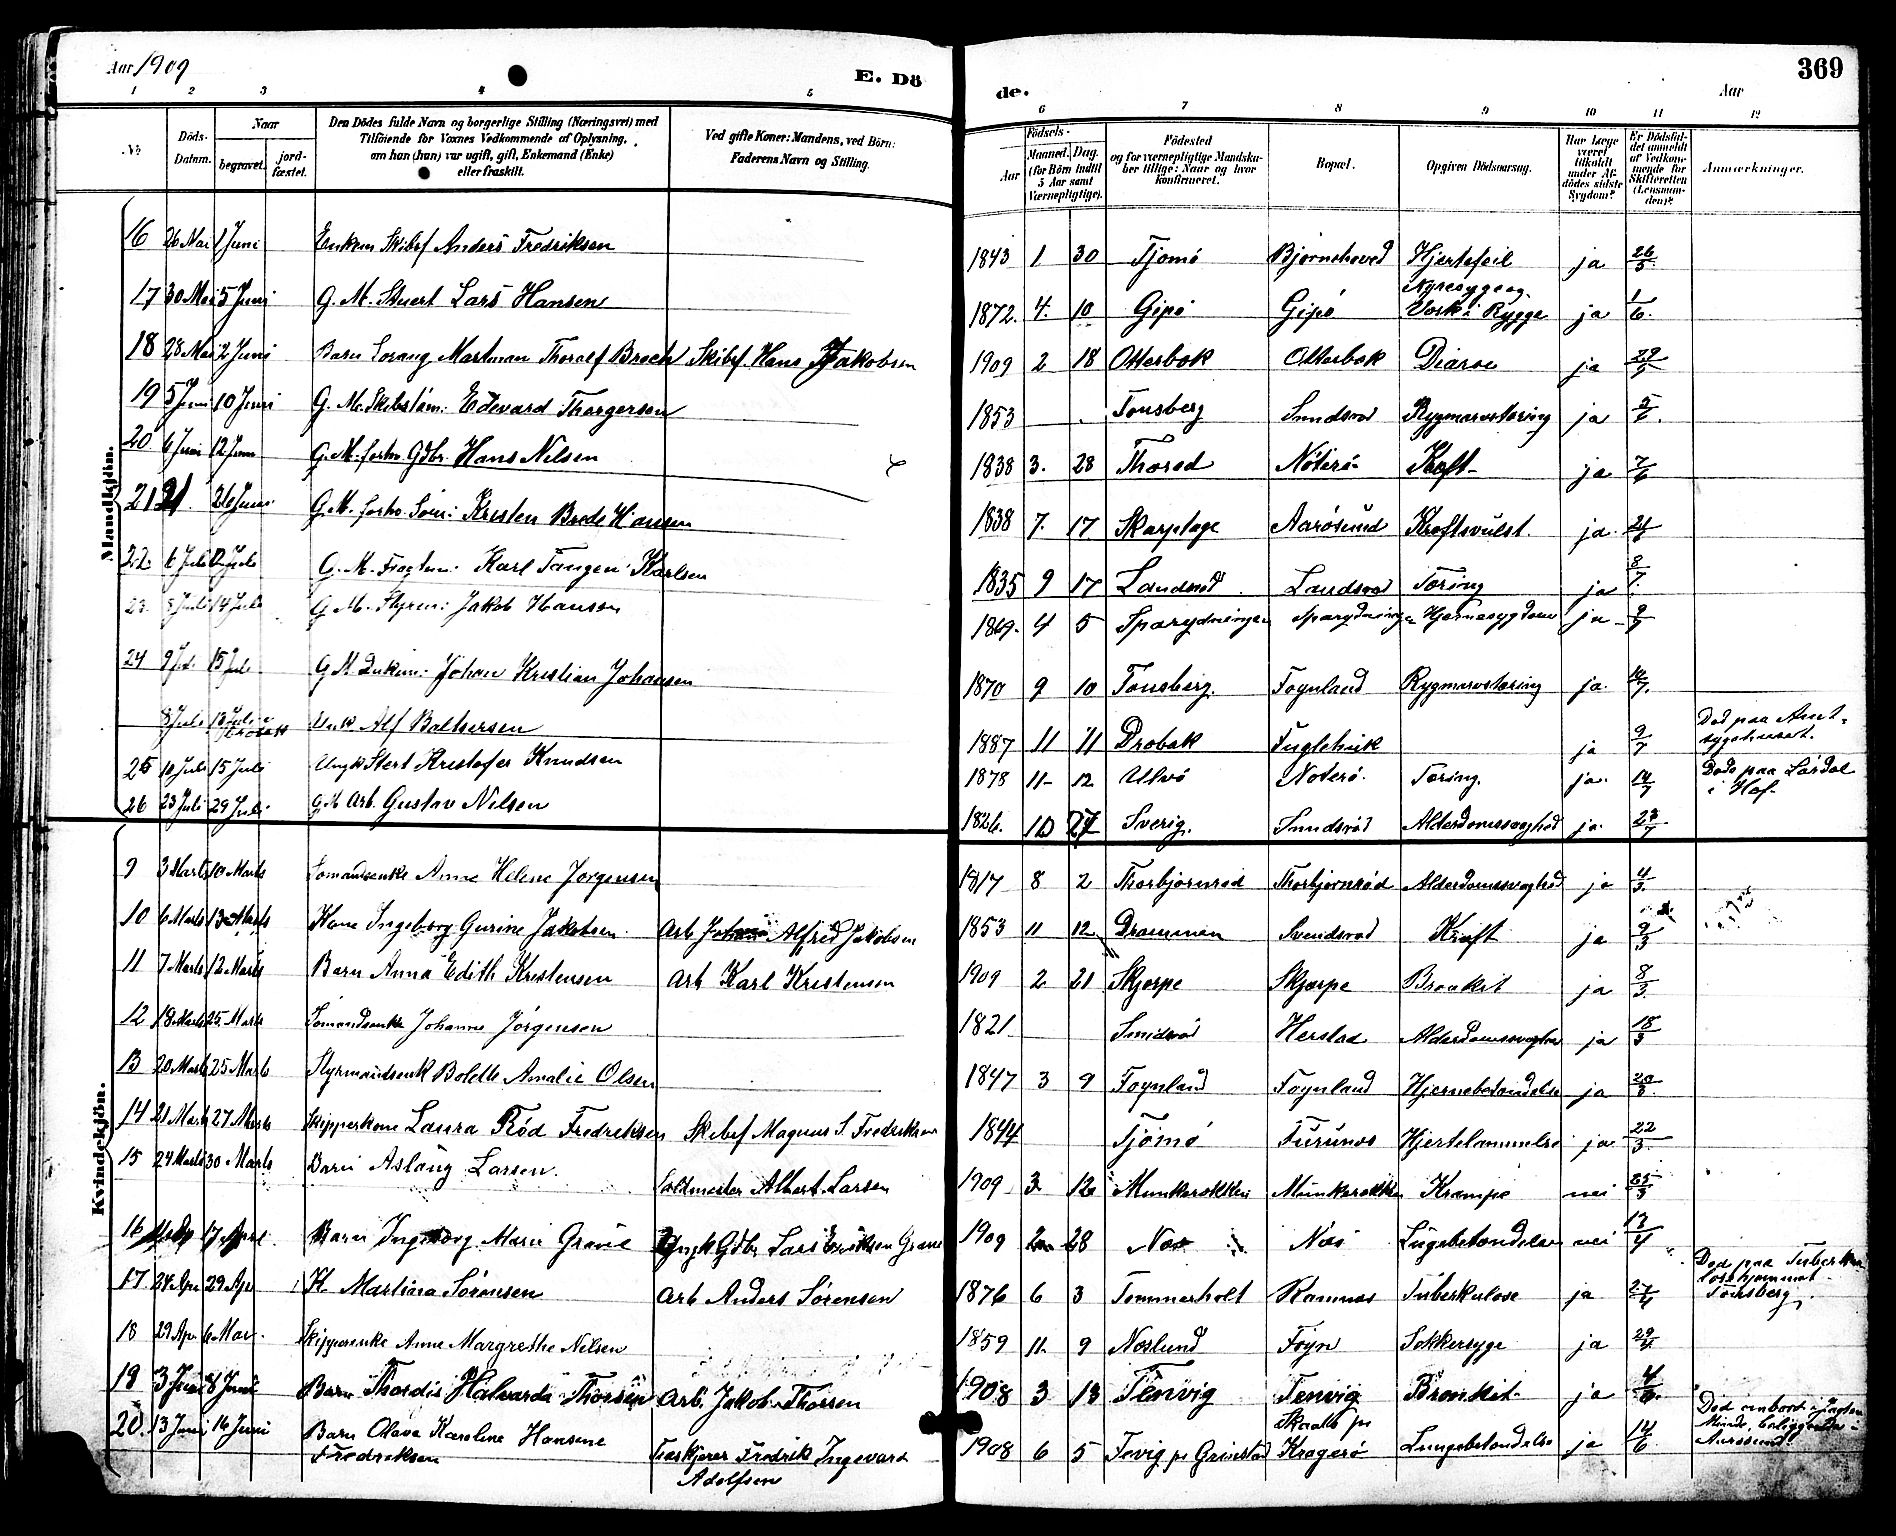 Aar 1909 E. Dö
de. Aar 369
1 2 3 4 5 6 7 8 9 10 11 12
No Döds-Datum. Naar begravet. jord-fæstet. Den Dödes fulde Navn og borgerlige Stilling (Næringsvei) med Tilföiende for Voxnes Vedkommende af Oplysning, om han (hun) var ugift, gift, Enkemand (Enke) eller fraskilt. Ved gifte Koner: Mandens, ved Börn: Faderens Navn og Stilling. Födsels- Aar Maaned. Dag. (for Börn indtil 5 Aar samt Værnepligtige). Födested og for værnepligtige Mandskaber tillige: Naar og hvor konfirmeret. Bopæl. Opgiven Dödsaarsag. Har Læge været tilkaldt under Afdödes sidste Sygdom? Er Dödsfaldet anmeldt af Vedkommende for Skifteretten (Lensmanden)? Anmærkninger.
Mandkjön.
16 26 Mai 1 Juni Enkem Skibsf Anders Fredriksen 1843 1 30 Tjomö Bjornehoved Hjertefeil ja 26/5
17 30 Mai 5 Juni G. M. Stuert Lars Hansen 1872. 4. 10 Gipö Gipö Nyresyge og Værk i Rygge ja 1/6
18 28 Mai 2 Juni Barn Martman Thoralf Broch Skibsf. Hans Jakobsen 1909 2 18 Otterbæk Otterbæk Diaroe ja 29/5
19 5 Juni 10 Juni G. M. Skibstöm: Edevard Thorgersen 1853 Tonsberg Smidsrod Rygmarvstæring ja 5/6
20 6 Juni 12 Juni G. M. forhv. Gdbr. Hans Nilsen 1838 3. 28 Thorod Nöterö Kræft ja 7/6
21 21. 26 Juni G. M. forhv. Söm: Kristen Brede Hansen 1838 7. 17 Skarphage Aarösund Kræftsvulst. ja 21/6
22. 6 Juli 12 Juli G. M. Fragtm: Karl Tangen Karlsen 1835 9 17 Landsrod Landsrod Tæring ja 8/7
23. 8 Juli 14 Juli G. M. Styrm: Jakob Hansen 1869. 4 5 Hjernesygdom ja 9/7
24 9 Juli 15 Juli G M Johan Kristian Johansen 1870 9 10 Tonsberg. Foynland Rygmarvstæring ja. 10/7.
8 Juli 13 Juli i Drobak Ungk Alf Baltsersen 1887 11 11 Drobak Fuglehuk ja 9/7 Dod paa Amtsygehuset.
25 10 Juli 15 Juli Ungk Stert Kristofer Knudsen 1878 11 12 Noterö. Tæring. ja. 14/7 Dode paa Lardal i Hof.
26 23 Juli 29 Juli G. M Arb. Gustav Nilsen 1826. 10 27 Sverig. Smidsröd Alderdomssvaghed ja. 23/7
Kvindekjön.
9 3 Marts 10 Marts Somandsenke Anne Helene Jorgensen 1817 8 2 Thorbjörnrod Thorbjörnröd Alderdomssvaghed ja 4/3.
10 6 Marts 13 Marts Kone Ingeborg Gurine Jakobsen. Arb Alfred Jakobsen 1853 11 12 Drammen Svendsrod Kræft ja 9/3
11 7 Marts 12 Marts Barn Anna Edith Kristensen Arb Karl Kristensen 1909 2 21 Skjerpe Skjærpe Bronkit ja 8/3
12 18 Marts 25. Marts Somandsenke Johanne Jörgensen 1821 Smidsröd Herstad Alderdomssvaghed ja 18/3
13 20 Marts 25 Marts Styrmandsenk Bolette Amalie Olsen 1847 3 9 Foynland Foynland Hjernebetændelse ja 20/3.
14 21 Marts 27 Marts Skipperkone Laura Röd Fredriksen Skibsf Magnus S. Fredriksen 1844 Tjömö Furunes Hjertelammelse ja 22/3.
15 24 Marts 30 Marts Barn Aslaug Larsen. Albert Larsen 1909 3 12 Munkerekken Munkerekken Krampe nei 25/3
16 17 April Barn Ingeborg Marie Gravie Ungk Gdbr Lars Eriksen Gravie 1909 2 28 Næs Næs Lugebetændelse nei 13/4
17 24 Apr 29 Apr K. Martina Sörensen Arb Anders Sörensen 1876 6 3 Tommerholt Ramnes Tuberkulose ja 27/4 Dod paa Tuberkulosehjemmet Tonsberg.
18 29 Apr 6 Mai Skipperenke Anne Margrethe Nilsen 1859 11 9 Næslund Foyn Sokkersyge ja 29/4
19 3 Juni 8 Juni Barn Thordis Halvarda Thorsen Arb. Jakob Thorsen 1908 3 13 Tenvig Tenvig Bronkit ja 4/6
20. 13 Juni 16 Juni Barn Olava Karoline Hansine Fredriksen Fredrik Ingevard Adolfsen 1908 6 5 Fevig pr Grimstad Skaatö pr Kragerö Lungebetændelse ja 14/6 Dod ombord i Jagten